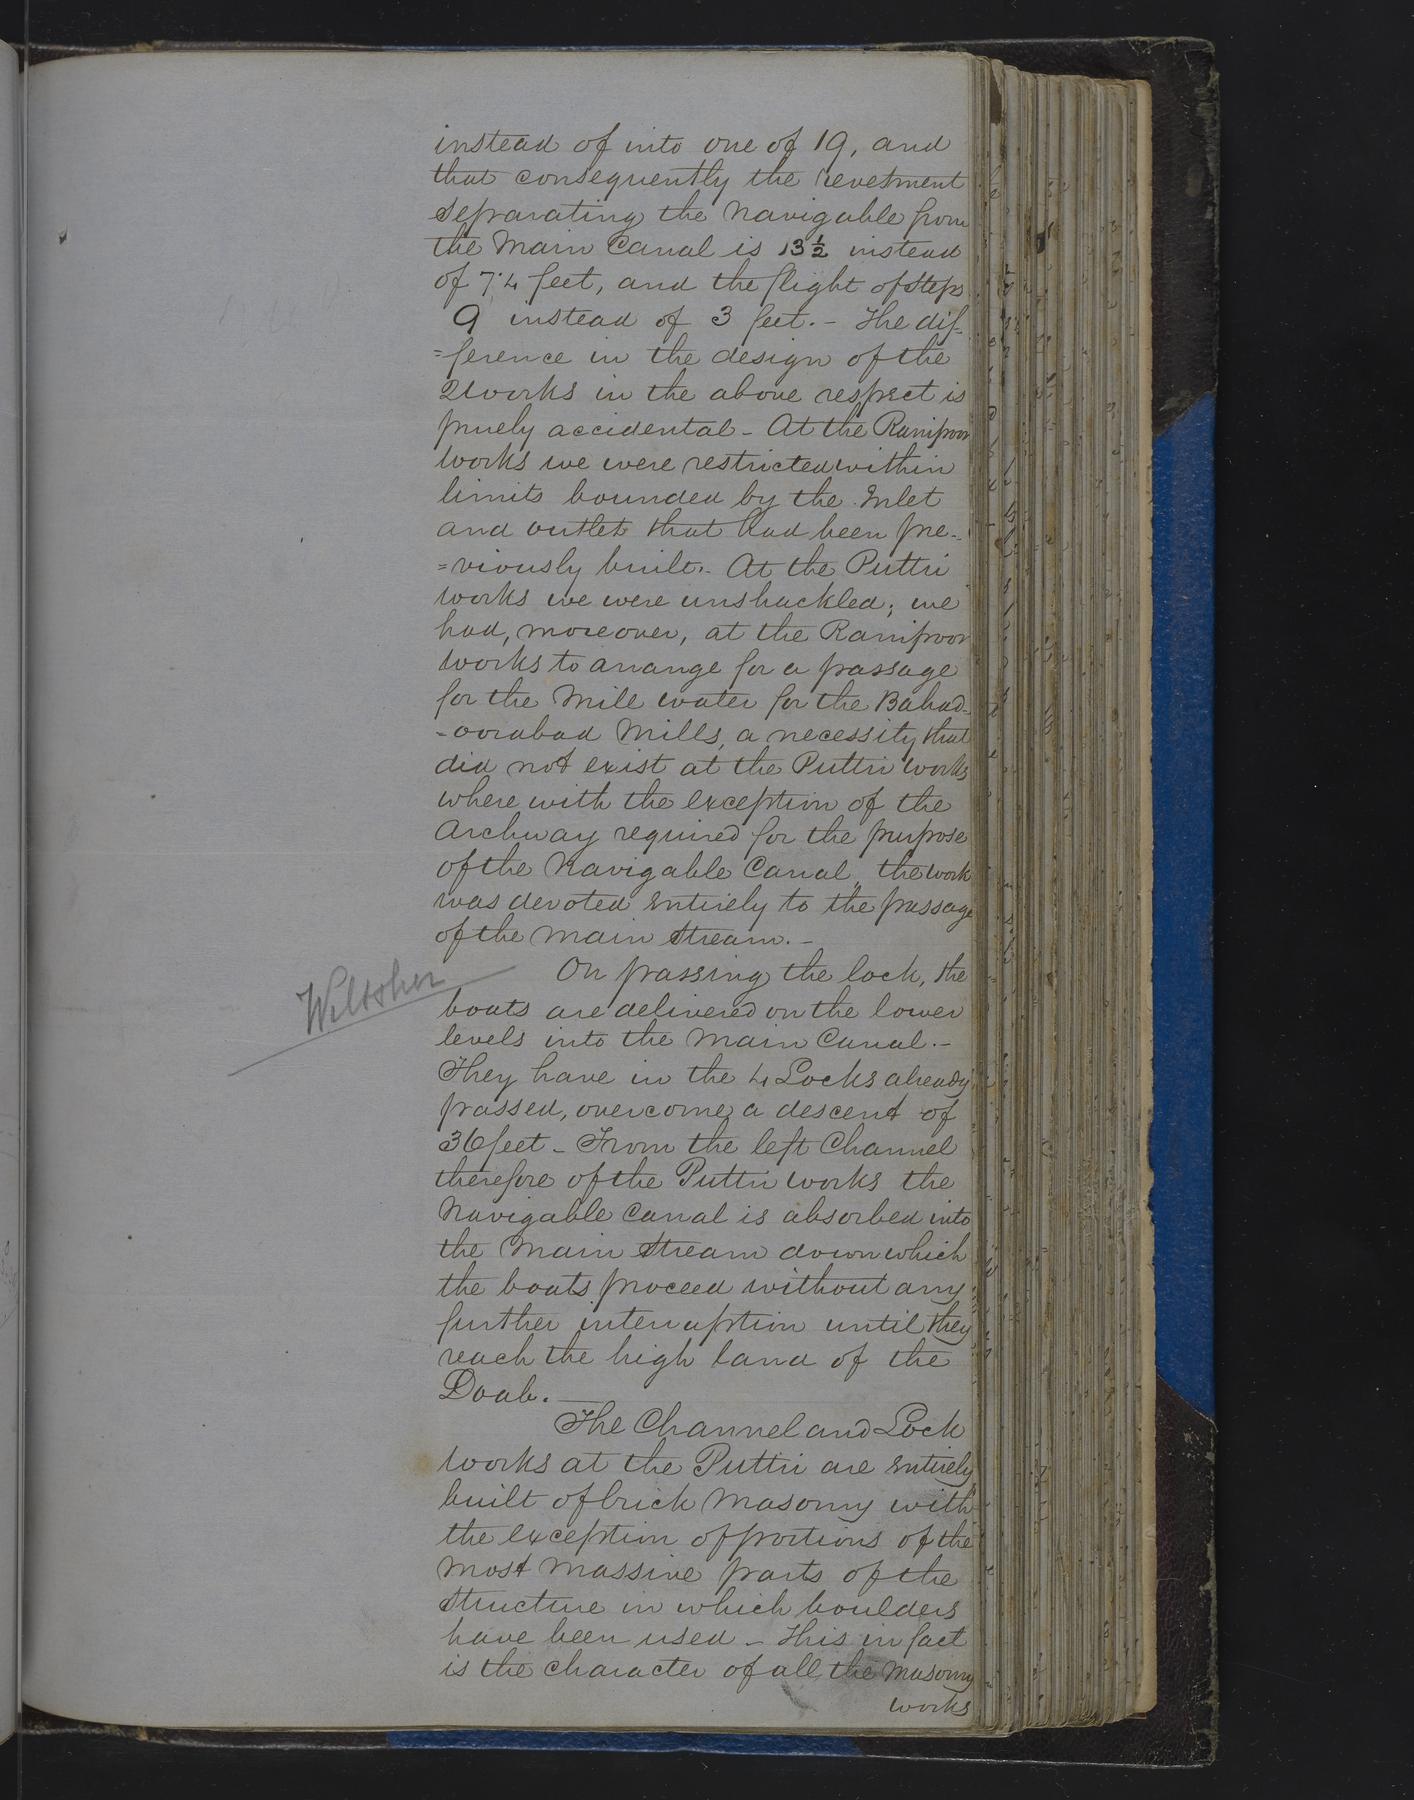 instead of into one of 19, and
that consequently the revetment
separating the Navigable from
the Main Canal is 13½ instead
of 7.4 feet, and the flight of steps
9 instead of 3 feet. - The dif-
=ference in the design of the
2 works in the above respect is
purely accidental - At the Ranipoor
works we were restricted within
limits bounded by the Inlet
and outlet that had been pre-
=viously built. - At the Puttri
works we were unshackled; we
had, moreover, at the Ranipoor
works to arrange for a passage
for the Mill water for the Bahad-
-oorabad Mills, a necessity that
did not exist at the Puttri works
where with the exception of the
Archway required for the purpose
of the Navigable Canal, the work
was devoted entirely to the passage
of the main stream. -
Wiltsher
On passing the lock, the
boats are delivered on the lower
levels into the Main Canal. -
They have in the 4 Locks already
passed, overcome a descent of
36 feet - From the left Channel
therefore of the Puttri works the
Navigable Canal is absorbed into
the Main Stream down which
the boats proceed without any
further interruption until they
reach the high land of the
Doab. -
The Channel and Lock
works at the Puttri are entirely
built of brick Masonry with
the exception of portions of the
most massive parts of the
structure in which boulders
have been used - This in fact
is the character of all the Masonry
works